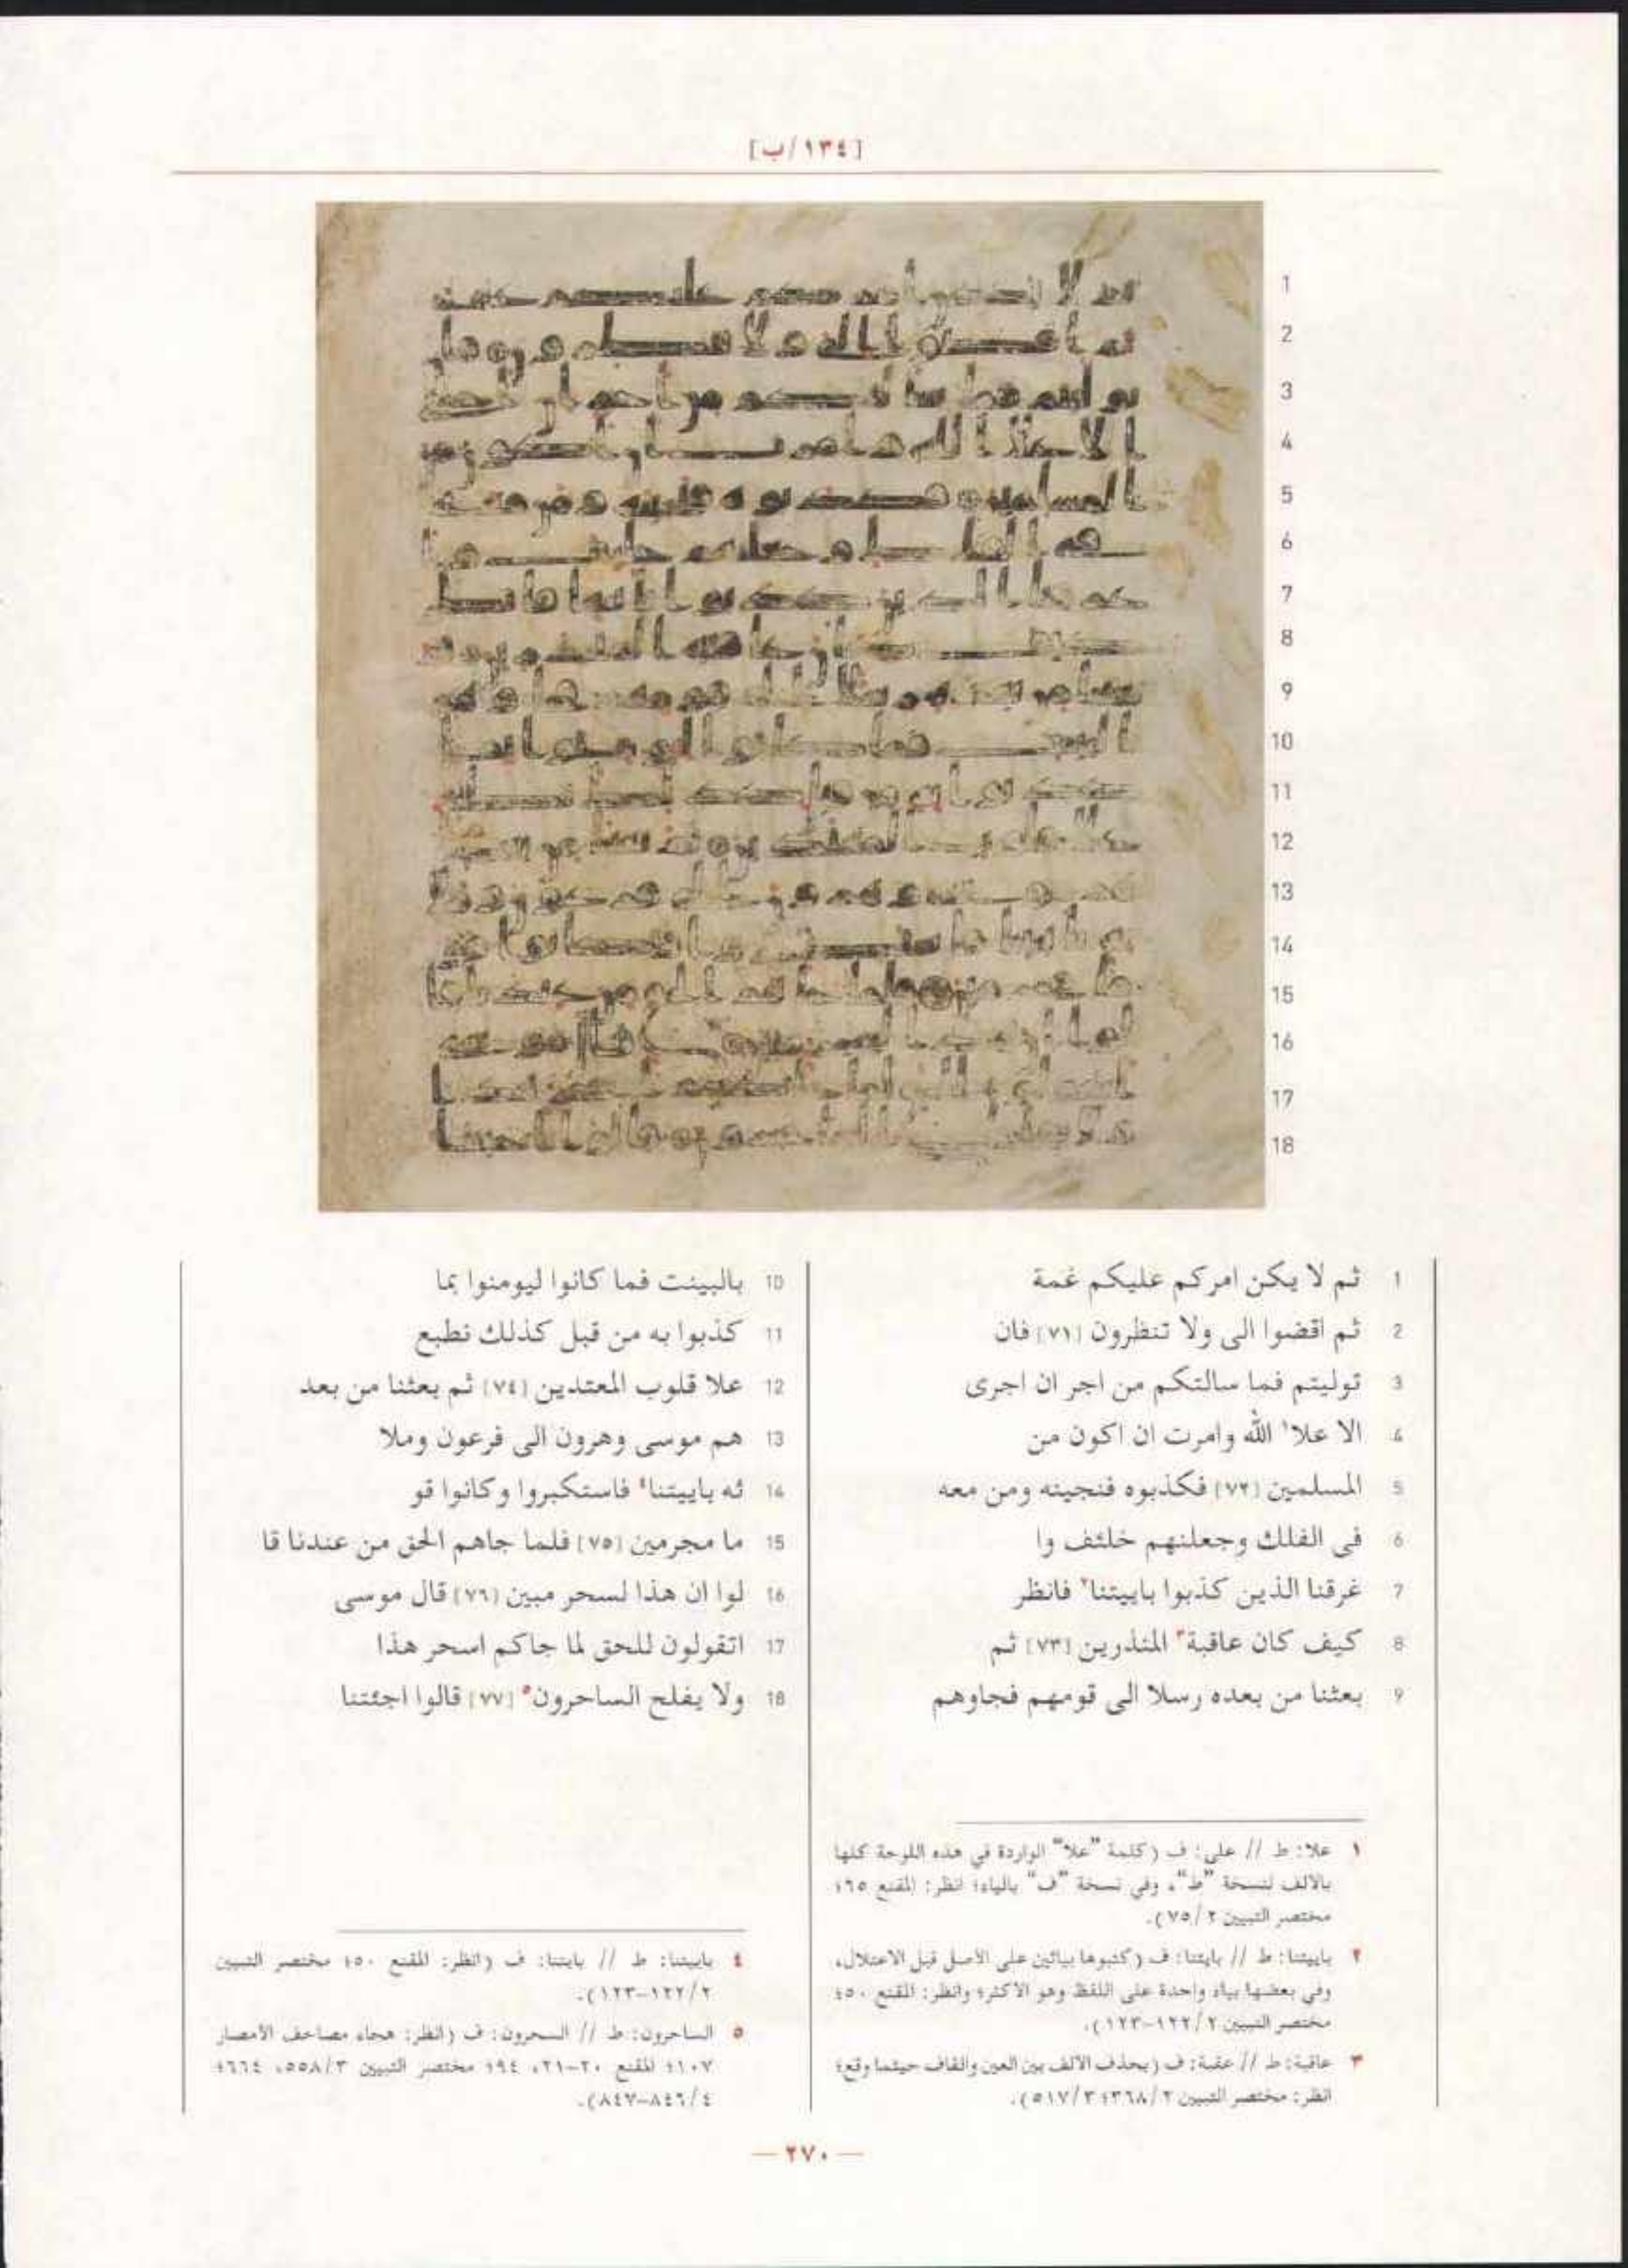 [١٣٤/ب]
1 ثم لا يكن امركم عليكم غمة
2 ثم اقضوا الى ولا تنظرون [٧١] فان
3 توليتم فما سالتكم من اجر ان اجرى
4 الا علا١ الله وامرت ان اكون من
5 المسلمين [٧٢] فكذبوه فنجينه ومن معه
6 فى الفلك وجعلنهم خلئف وا
7 غرقنا الذين كذبوا باييتنا٢ فانظر
8 كيف كان عاقبة٣ المنذرين [٧٣] ثم
9 بعثنا من بعده رسلا الى قومهم فجاوهم
10 بالبينت فما كانوا ليومنوا بما
11 كذبوا به من قبل كذلك نطبع
12 علا قلوب المعتدين [٧٤] ثم بعثنا من بعد
13 هم موسى وهرون الى فرعون وملا
14 ئه باييتنا٤ فاستكبروا وكانوا قو
15 ما مجرمين [٧٥] فلما جاهم الحق من عندنا قا
16 لوا ان هذا لسحر مبين [٧٦] قال موسى
17 اتقولون للحق لما جاكم اسحر هذا
18 ولا يفلح الساحرون٥ [٧٧] قالوا اجئتنا
١ علا: ط // على: ف (كلمة "علا" الواردة في هذه اللوحة كلها
بالالف لنسخة "ط"، وفي نسخة "ف" بالياء؛ انظر: المقنع ٦٥؛
مختصر التبيين ٧٥/٢).
٢ باييتنا: ط // بايتنا: ف (كتبوها بيائين على الأصل قبل الاعتلال،
وفي بعضها بياء واحدة على اللفظ وهو الأكثر؛ وانظر: المقنع ٥٠؛
مختصر التبيين ١٢٢/٢-١٢٣).
٣ عاقبة: ط // عقبة: ف (بحذف الألف بين العين والقاف حيثما وقع؛
انظر: مختصر التبيين ٣٦٨/٢؛ ٥١٧/٣).
٤ باييتنا: ط // بايتنا: ف (انظر: المقنع ٥٠؛ مختصر التبيين
١٢٢/٢-١٢٣).
٥ الساحرون: ط // السحرون: ف (انظر: هجاء مصاحف الأمصار
١٠٧؛ المقنع ٢٠-٢١، ٩٤؛ مختصر التبيين ٥٥٨/٣، ٦٦٤؛
٨٤٦/٤-٨٤٧).
— ٢٧٠ —